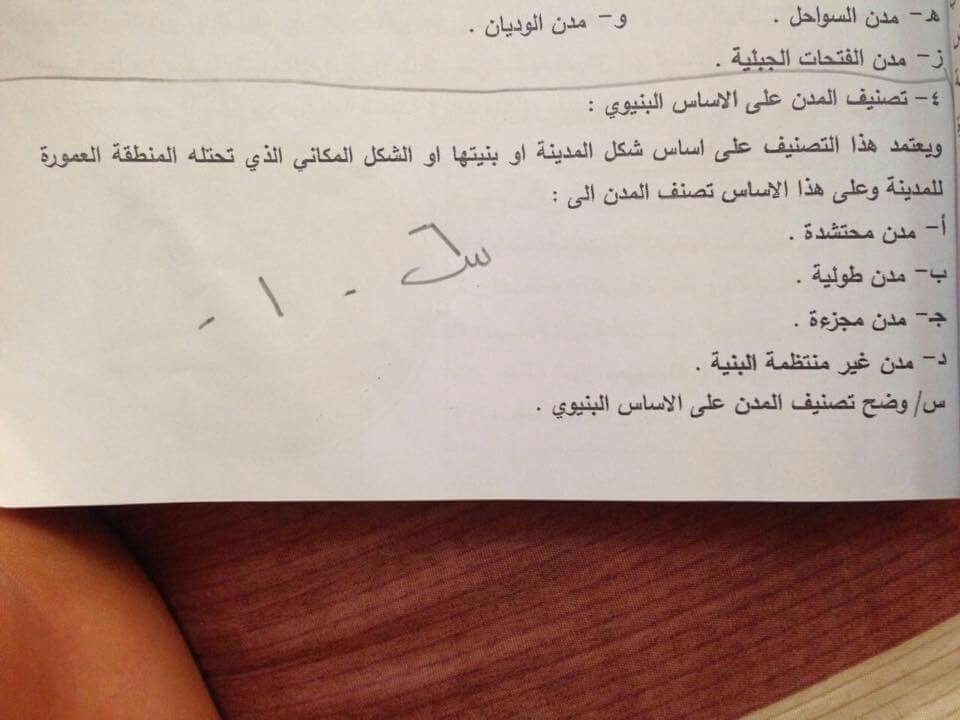 هـ- مدن السواحل . و- مدن الوديان .
ز- مدن الفتحات الجبلية .
٤- تصنيف المدن على الاساس البنيوي :
ويعتمد هذا التصنيف على اساس شكل المدينة او بنيتها او الشكل المكاني الذي تحتله المنطقة العمورة
للمدينة وعلى هذا الاساس تصنف المدن الى :
أ- مدن محتشدة .
ب- مدن طولية .
جـ- مدن مجزءة .
د- مدن غير منتظمة البنية .
س/ وضح تصنيف المدن على الاساس البنيوي .